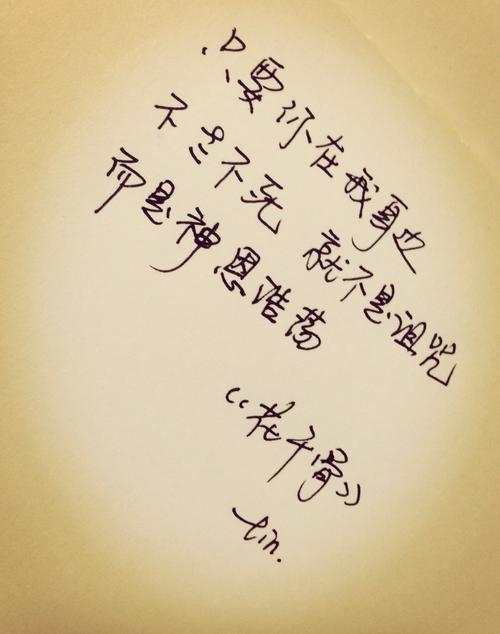 只要你在我身边
不老不死 就不是诅咒
而是神恩浩荡
《花千骨》
tin.